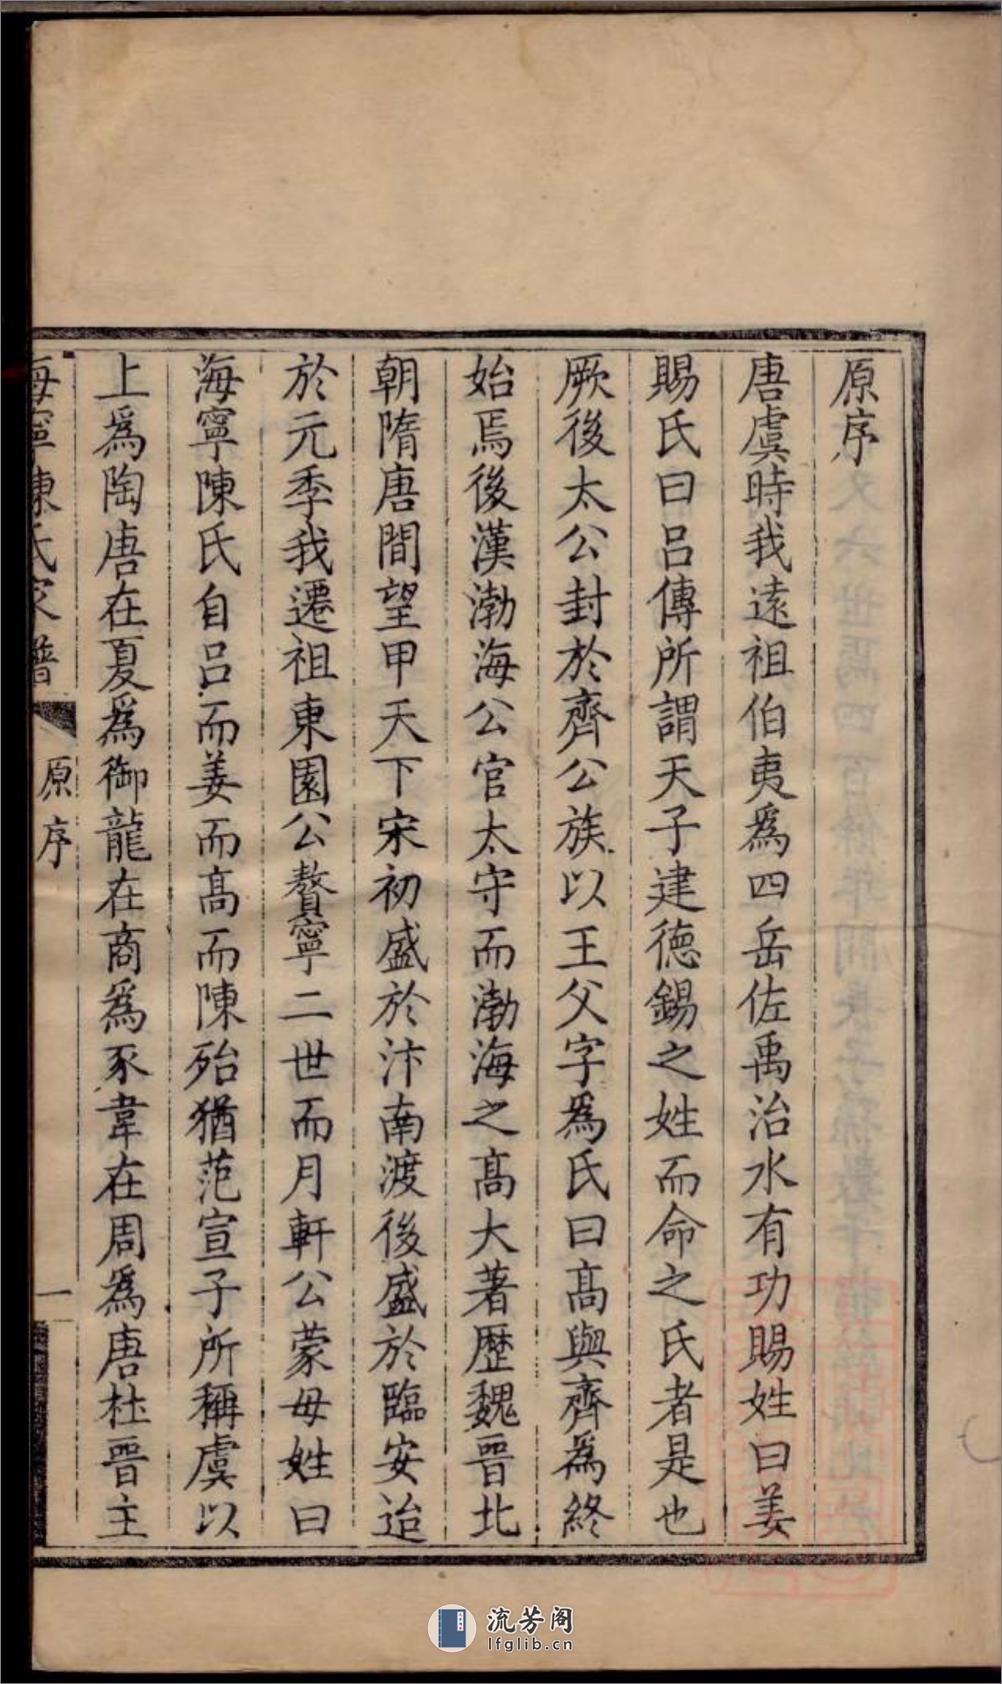 原序
唐虞時我遠祖伯夷爲四岳佐禹治水有功賜姓曰姜
賜氏曰呂傳所謂天子建德錫之姓而命之氏者是也
厥後太公封於齊公族以王父字爲氏曰髙與齊爲終
始焉後漢渤海公官太守而渤海之髙大著歷魏晉北
朝隋唐間望甲天下宋初盛於汴南渡後盛於臨安迨
於元季我遷祖東園公贅寧二世而月軒公蒙母姓曰
海寧陳氏自呂而姜而髙而陳殆猶范宣子所稱虞以
上爲陶唐在夏爲御龍在商爲豕韋在周爲唐杜晉主
海寧陳氏家譜 原序 一
流芳阁
lfglib.cn